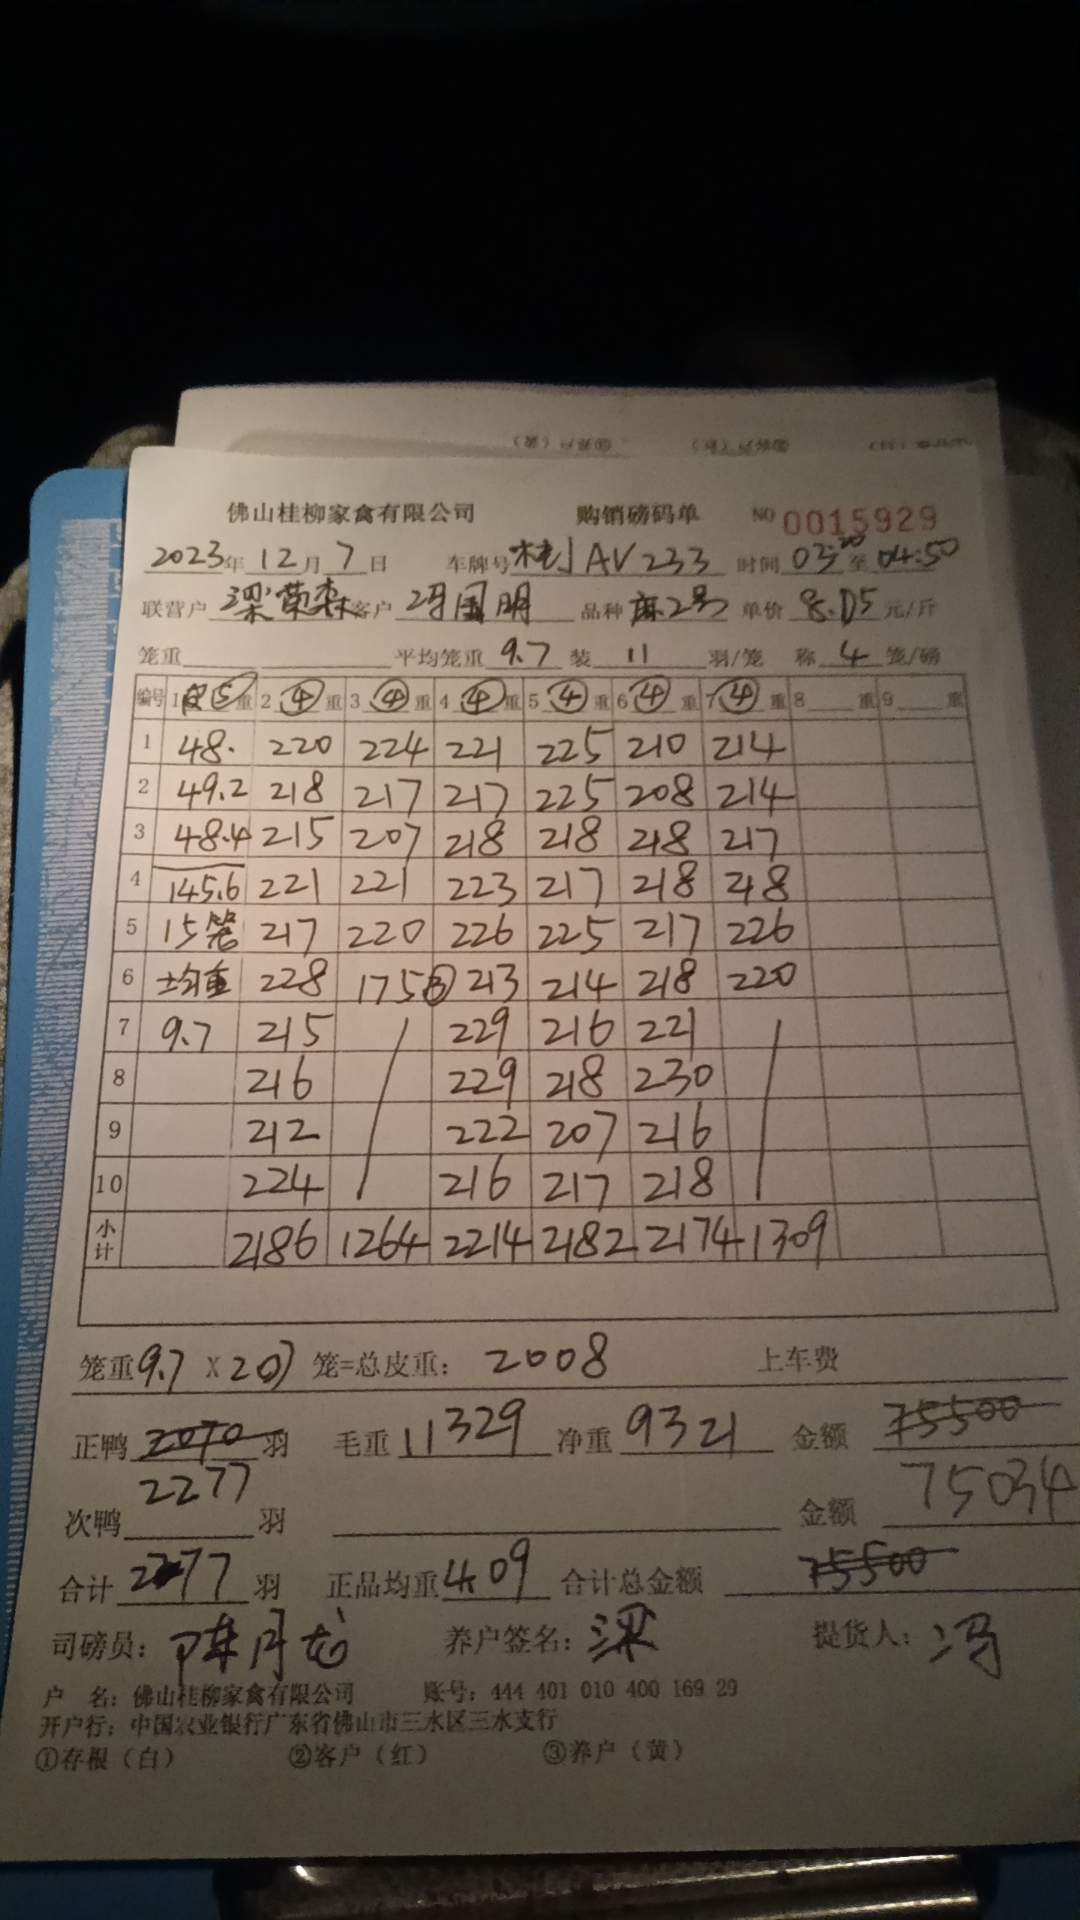 佛山桂柳家禽有限公司 购销磅码单 NO 0015929
2023年12月7日 车牌号 AV233 时间 03:20至04:50
联营户 梁荣森 客户 冯国明 品种 麻2号 单价 8.05 元/斤
笼重 平均笼重 9.7 装 11 羽/笼 称 4 笼/磅
编号 1皮⑤重 2④重 3④重 4④重 5④重 6④重 7④重 8重 9重
1 48. 220 224 221 225 210 214
2 49.2 218 217 217 225 208 214
3 48.4 215 207 218 218 218 217
4 145.6 221 221 223 217 218 218
5 15笼 217 220 226 225 217 226
6 均重 228 175③ 213 214 218 220
7 9.7 215 229 216 221
8 216 229 218 230
9 212 222 207 216
10 224 216 217 218
小计 2186 1264 2214 2182 2174 1309
笼重9.7 X 207 笼=总皮重: 2008 上车费
正鸭 2070 羽 毛重 11329 净重 9321 金额 75500
2277 75034
次鸭 羽 金额
合计 2277 羽 正品均重 4.09 合计总金额 75500
司磅员: 陈月龙 养户签名: 梁 提货人: 冯
户 名: 佛山桂柳家禽有限公司 账号: 444 401 010 400 169 29
开户行: 中国农业银行广东省佛山市三水区三水支行
①存根(白) ②客户(红) ③养户(黄)